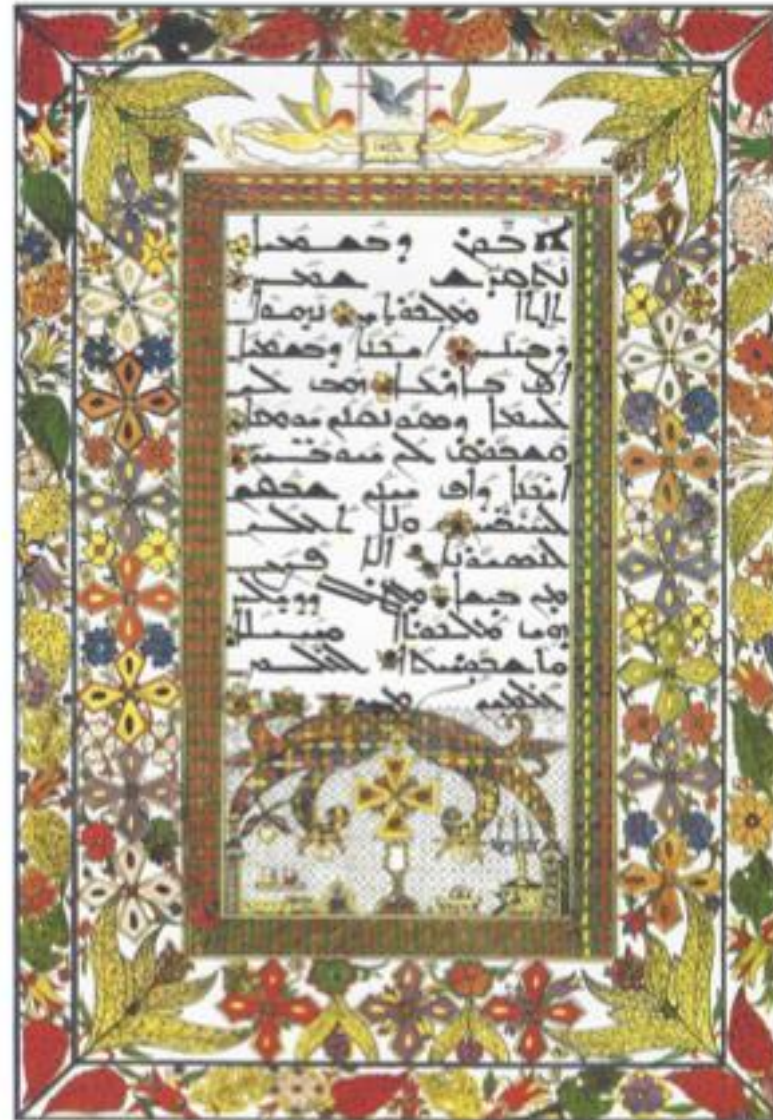 ܐܒܘܢ ܕܒܫܡܝܐ
ܢܬܩܕܫ ܫܡܟ
ܬܐܬܐ ܡܠܟܘܬܟ ܢܗܘܐ
ܨܒܝܢܟ ܐܝܟܢܐ ܕܒܫܡܝܐ
ܐܦ ܒܐܪܥܐ ܗܒ ܠܢ
ܠܚܡܐ ܕܣܘܢܩܢܢ ܝܘܡܢܐ
ܘܫܒܘܩ ܠܢ ܚܘܒܝܢ
ܐܝܟܢܐ ܕܐܦ ܚܢܢ ܫܒܩܢ
ܠܚܝܒܝܢ ܘܠܐ ܬܥܠܢ
ܠܢܣܝܘܢܐ ܐܠܐ ܦܨܢ
ܡܢ ܒܝܫܐ ܡܛܠ ܕܕܝܠܟ
ܗܝ ܡܠܟܘܬܐ ܚܝܠܐ
ܘܬܫܒܘܚܬܐ ܠܥܠܡ
ܥܠܡܝܢ